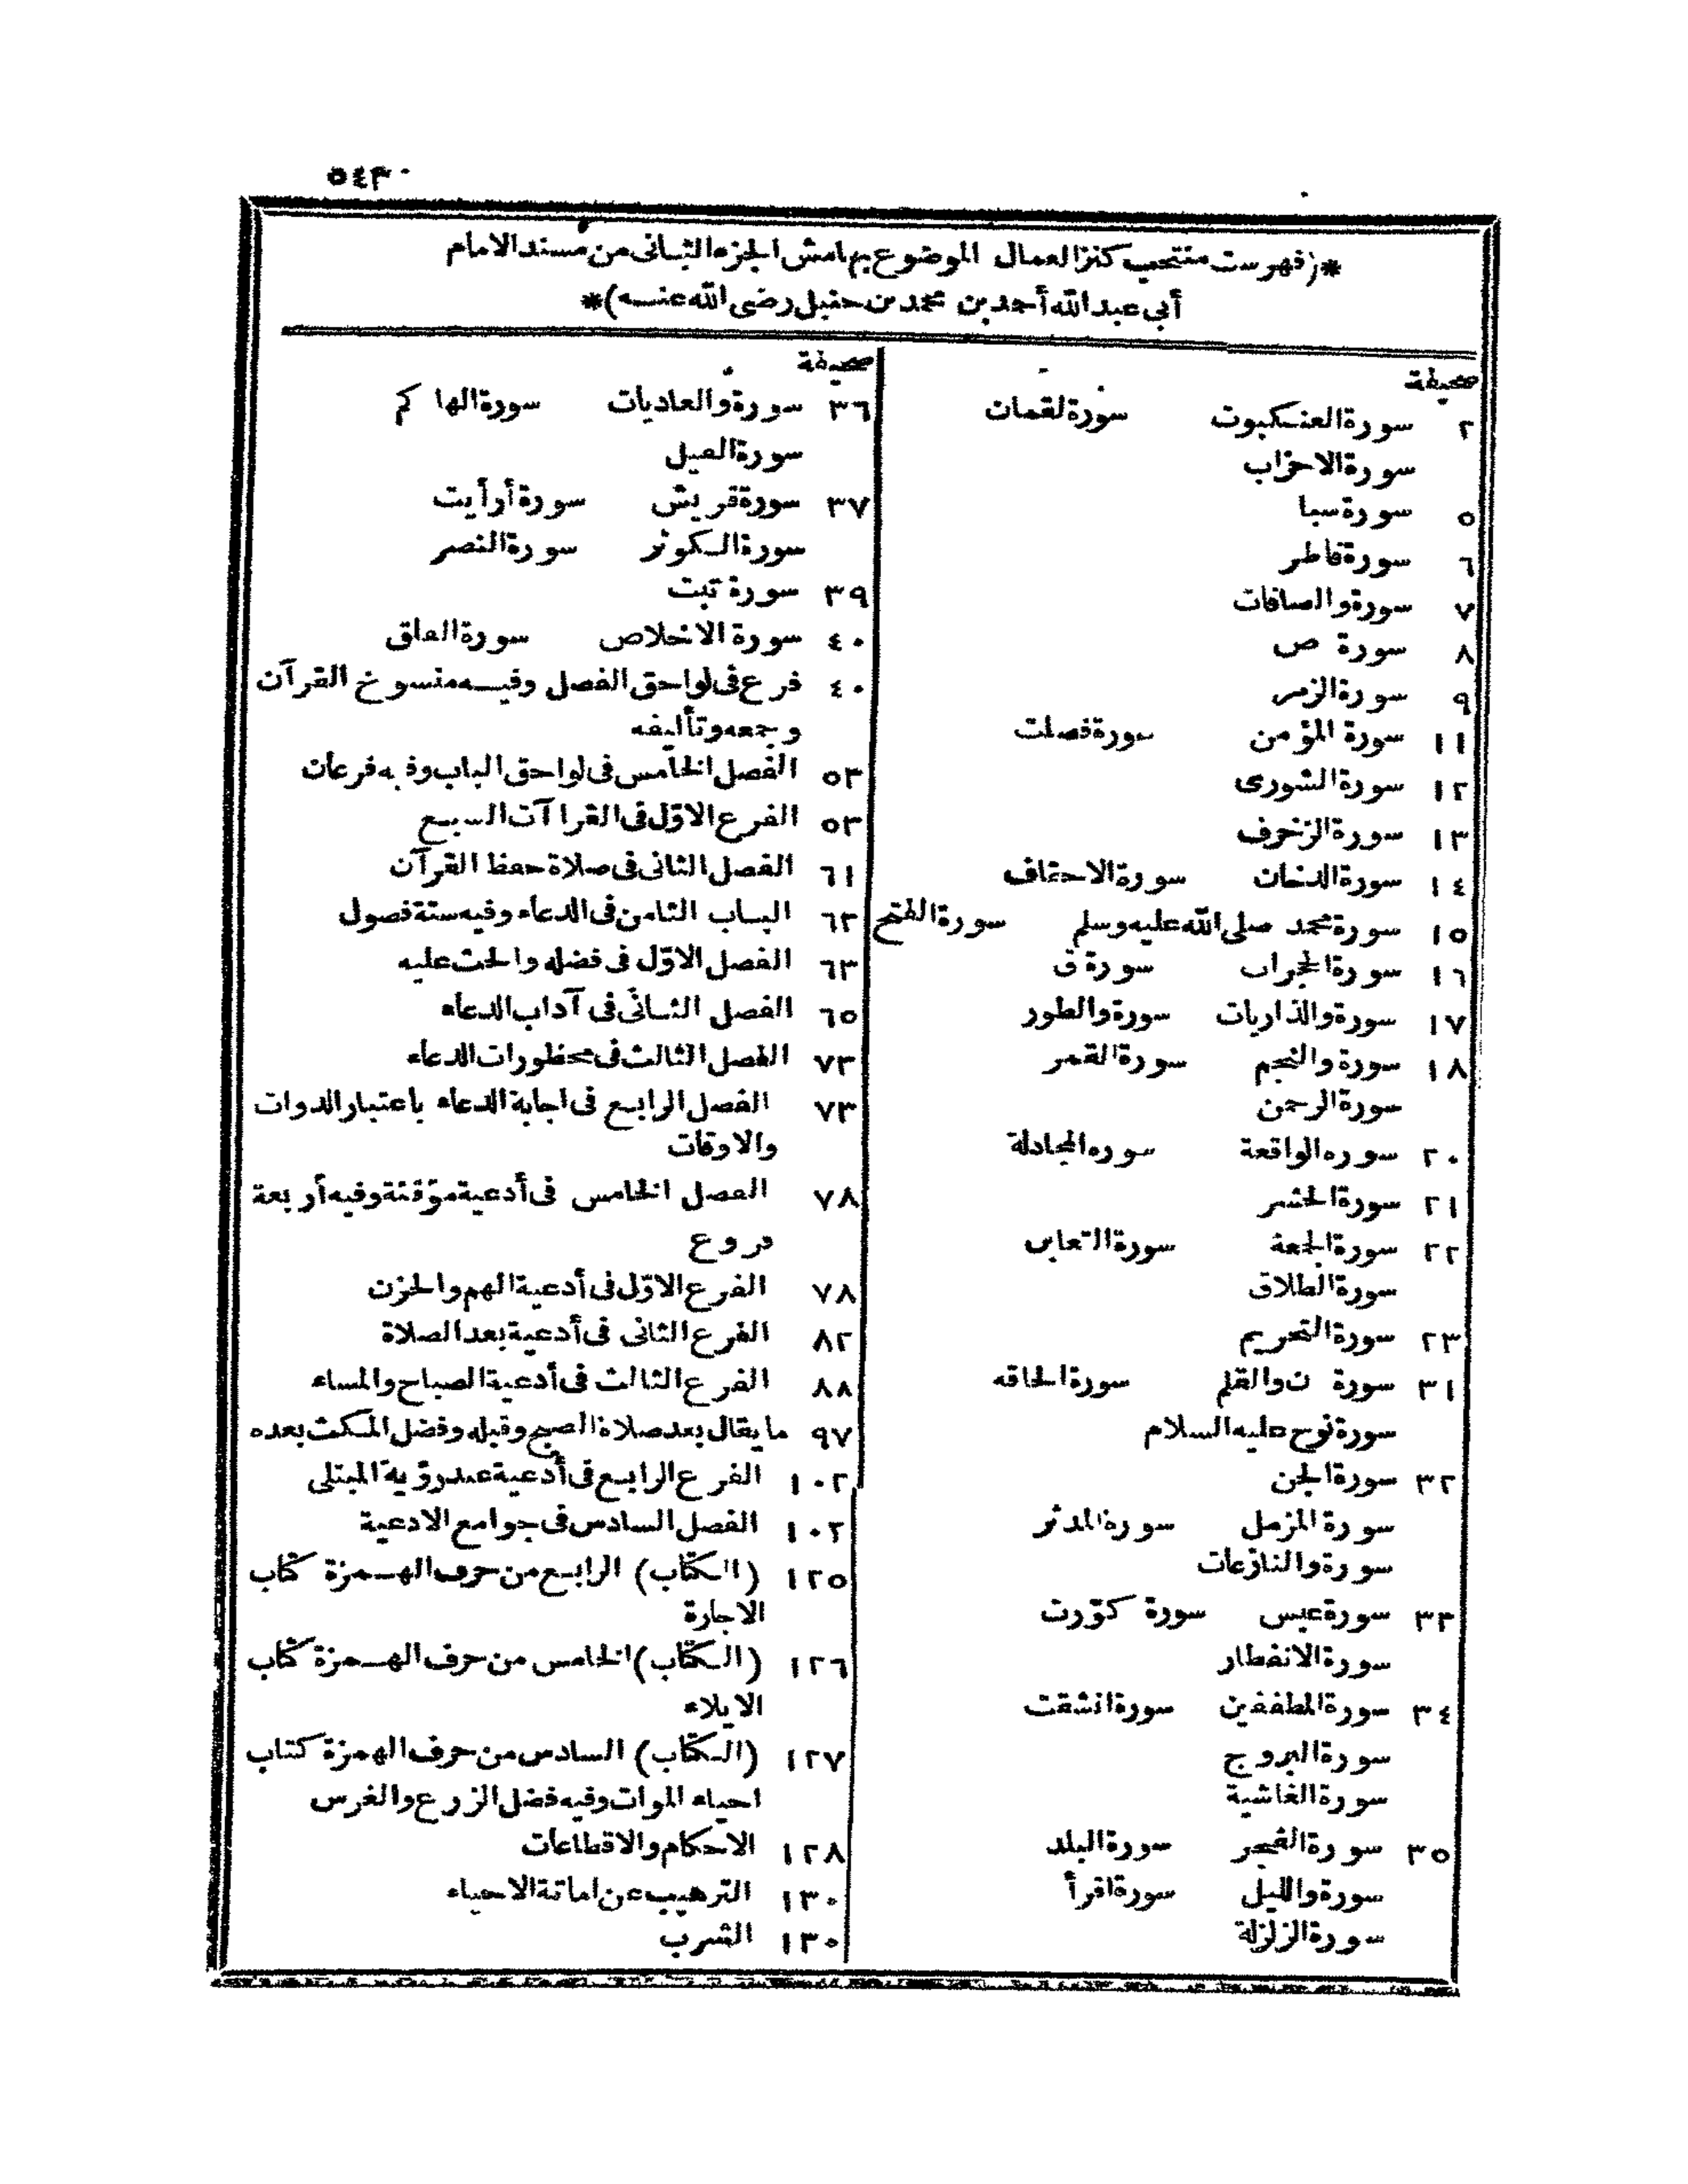 ٥٤٣٠
*(فهرست منتخب كنز العمال الموضوع بهامش الجزء الثانى من مسند الامام
أبى عبد الله أحمد بن محمد بن حنبل رضى الله عنه)*
صحيفة
٢ سورة العنكبوت سورة لقمان
سورة الاحزاب
٥ سورة سبا
٦ سورة فاطر
٧ سورة والصافات
٨ سورة ص
٩ سورة الزمر
١١ سورة المؤمن سورة فصلت
١٢ سورة الشورى
١٣ سورة الزخرف
١٤ سورة الدخان سورة الاحقاف
١٥ سورة محمد صلى الله عليه وسلم سورة الفتح
١٦ سورة الحجرات سورة ق
١٧ سورة والذاريات سورة والطور
١٨ سورة والنجم سورة القمر
سورة الرحمن
٢٠ سوره الواقعة سوره المجادلة
٢١ سورة الحشر
٢٢ سورة الجمعة سورة التغابن
سورة الطلاق
٢٣ سورة التحريم
٣١ سورة ن والقلم سورة الحاقه
سورة نوح عليه السلام
٣٢ سورة الجن
سورة المزمل سورة المدثر
سورة والنازعات
٣٣ سورة عبس سورة كوّرت
سورة الانفطار
٣٤ سورة المطففين سورة انشقت
سورة البروج
سورة الغاشية
٣٥ سورة الفجر سورة البلد
سورة والليل سورة اقرأ
سورة الزلزلة
صحيفة
٣٦ سورة والعاديات سورة الهاكم
سورة الفيل
٣٧ سورة قريش سورة أرأيت
سورة الكوثر سورة النصر
٣٩ سورة تبت
٤٠ سورة الاخلاص سورة الفلق
٤٠ فرع فى لواحق الفصل وفيه منسوخ القرآن
وجمعه وتأليفه
٥٣ الفصل الخامس فى لواحق الباب وفيه فرعان
٥٣ الفرع الاوّل فى القرا آت السبع
٦١ الفصل الثانى فى صلاة حفظ القرآن
٦٣ الباب الثامن فى الدعاء وفيه ستة فصول
٦٣ الفصل الاوّل فى فضله والحث عليه
٦٥ الفصل الثانى فى آداب الدعاء
٧٣ الفصل الثالث فى محظورات الدعاء
٧٣ الفصل الرابع فى اجابة الدعاء باعتبار الذوات
والاوقات
٧٨ الفصل الخامس فى أدعية مؤقتة وفيه أربعة
فروع
٧٨ الفرع الاوّل فى أدعية الهم والحزن
٨٢ الفرع الثانى فى أدعية بعد الصلاة
٨٨ الفرع الثالث فى أدعية الصباح والمساء
٩٧ ما يقال بعد صلاة الصبح وقبله وفضل المكث بعده
١٠٢ الفرع الرابع فى أدعية عند رؤية المبتلى
١٠٢ الفصل السادس فى جوامع الادعية
١٢٥ (الكتاب) الرابع من حرف الهمزة كتاب
الاجارة
١٢٦ (الكتاب) الخامس من حرف الهمزة كتاب
الايلاء
١٢٧ (الكتاب) السادس من حرف الهمزة كتاب
احياء الموات وفيه فضل الزرع والغرس
١٢٨ الاحكام والاقطاعات
١٣٠ الترهيب عن اماتة الاحياء
١٣٠ الشرب